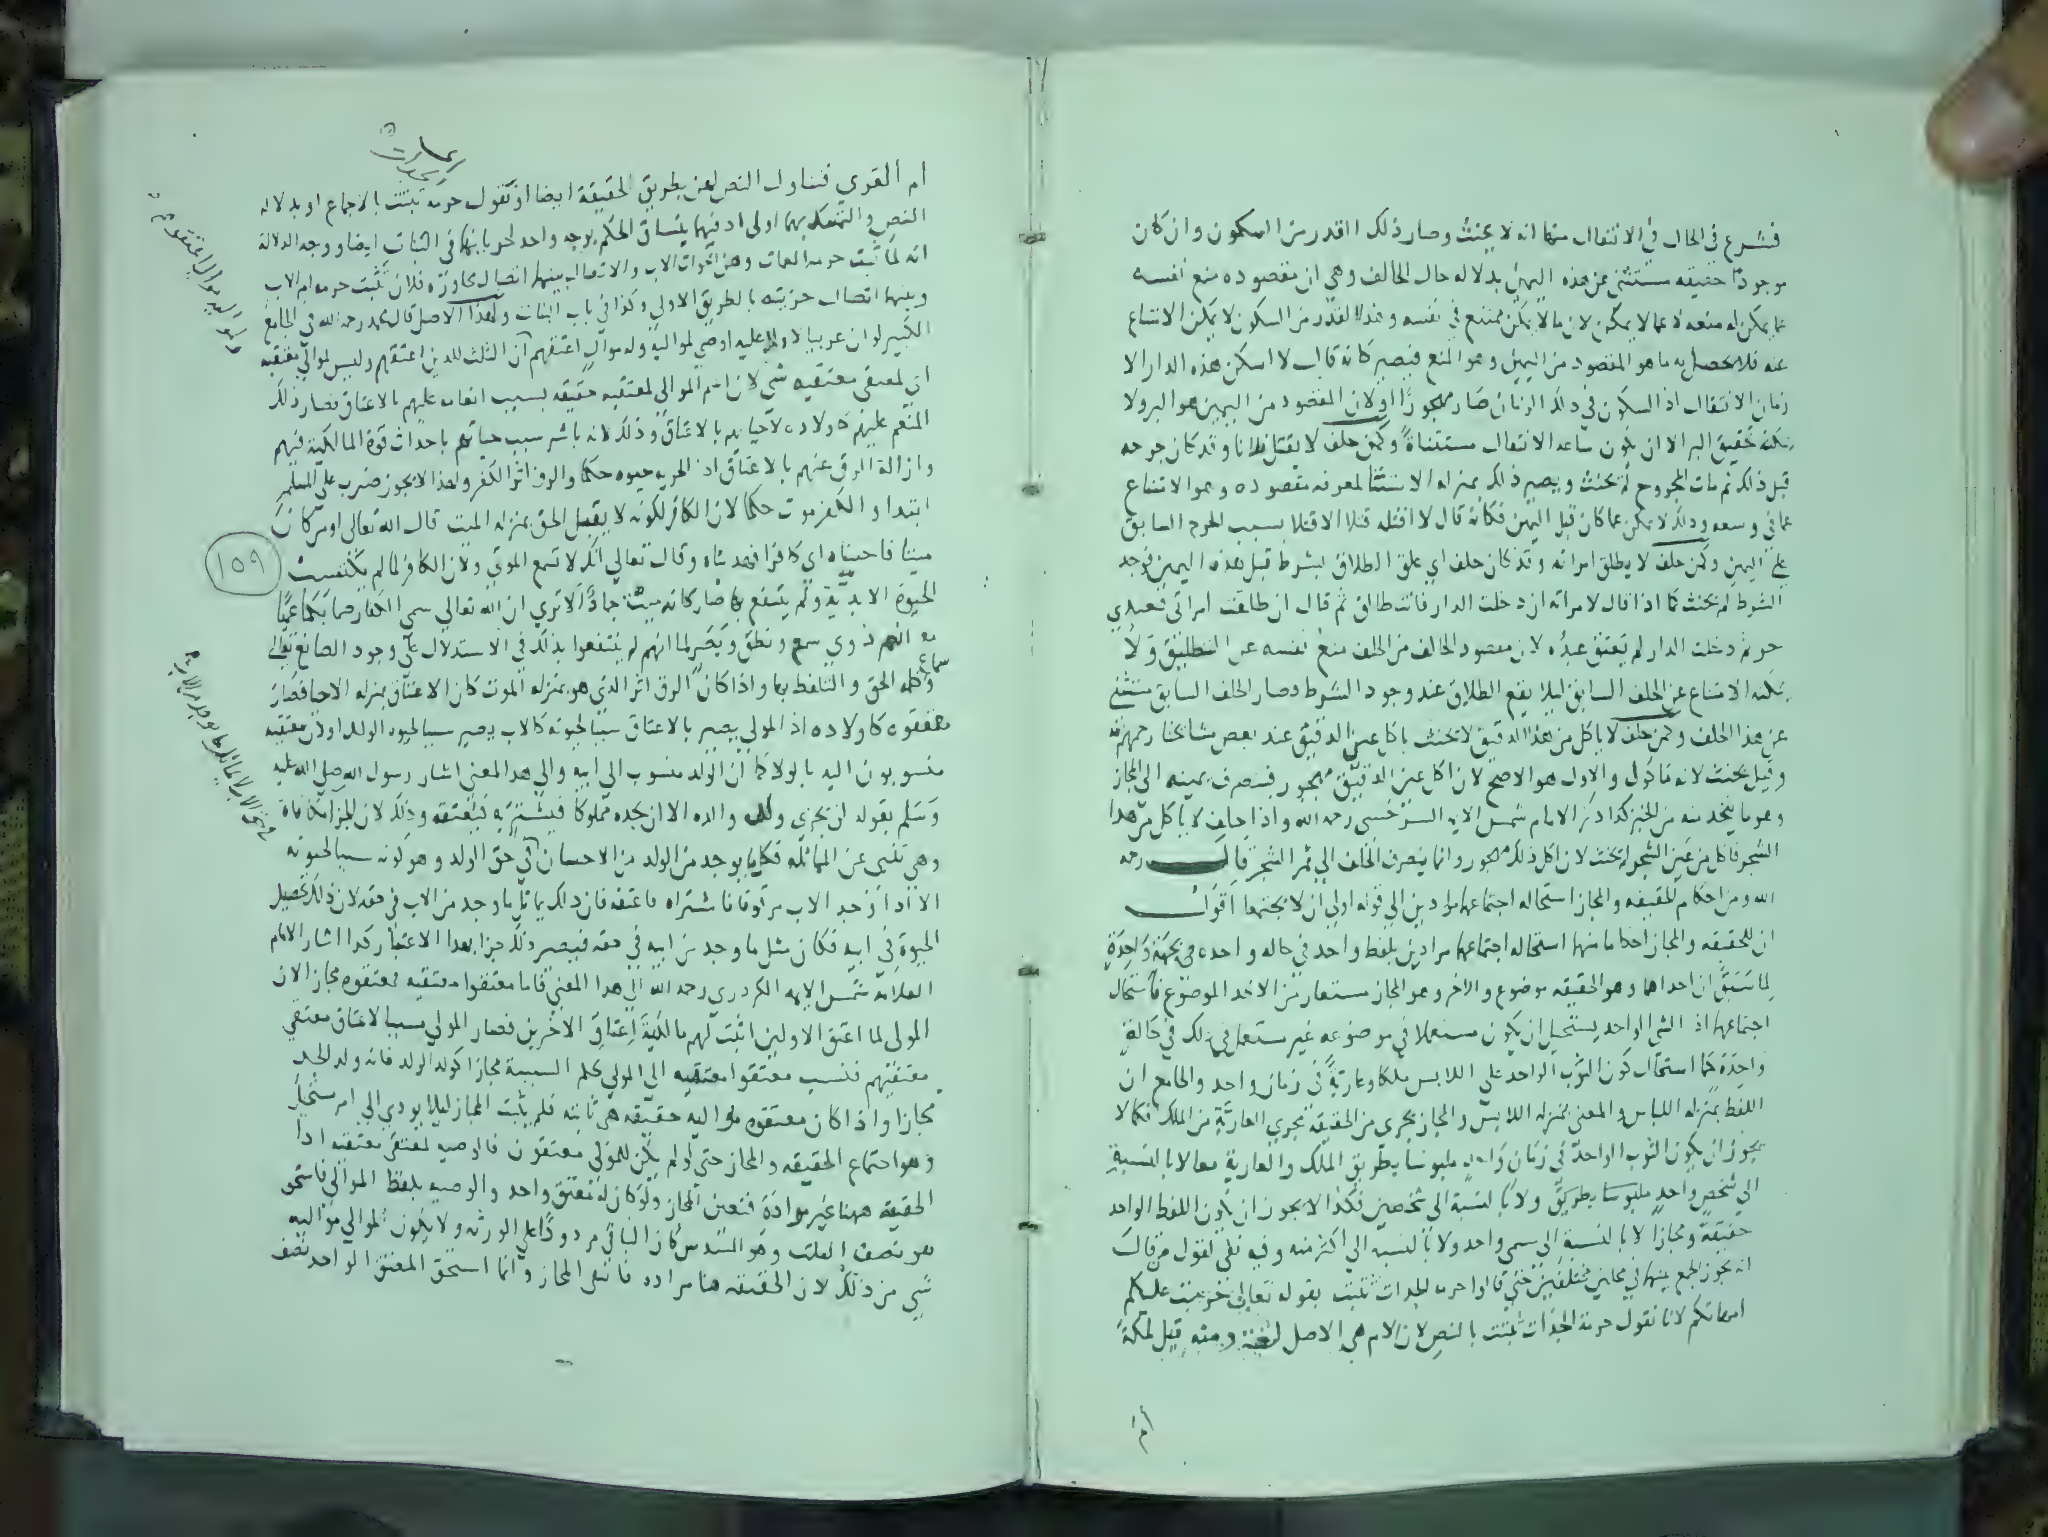 فشرع في الحال في الانتقال منها انه لا يحنث وصار ذلك القدر من السكون وان كان
موجودا حقيقه مستثنى عن هذه اليمين بدلاله حال الحالف وهي ان مقصوده منع نفسه
عما يمكن له منعه لا عما لا يمكن لان ما لا يمكن ممتنع في نفسه وهذا القدر من السكون لا يمكن الامتناع
عنه فلا يحصل به ما هو المقصود من اليمين وهو المنع فيصير كانه قال لا اسكن هذه الدار الا
زمان الانتقال اذ السكون في ذلك الزمان صار مهجورا او لان المقصود من اليمين هو البر ولا
يمكنه تحقيق البر الا ان يكون ساعه الانتقال مستثناة وكمن حلف لا يقتل فلانا وقد كان جرحه
قبل ذلك ثم مات المجروح لم يحنث ويصير ذلك بمنزله الاستثنا لمعرفه مقصوده وهو الامتناع
عما في وسعه وذلك لا يمكن عما كان قبل اليمين فكانه قال لا اقتله قتلا الا قتلا بسبب الجرح السابق
على اليمين وكمن حلف لا يطلق امراته وقد كان حلف اي علق الطلاق بشرط قبل هذه اليمين فوجد
الشرط لم يحنث كما اذا قال لامراته ان دخلت الدار فانت طالق ثم قال ان طلقت امراتي فعبدي
حر ثم دخلت الدار لم يعتق عبده لان مقصود الحالف من الحلف منع نفسه عن التطليق ولا
يمكنه الامتناع عن الحلف السابق ليلا يقع الطلاق عند وجود الشرط وصار الحلف السابق مستثنى
عن هذا الحلف وكمن حلف لا ياكل من هذا الدقيق لا يحنث باكل عين الدقيق عند بعض مشائخنا رحمهم الله
وقيل يحنث لانه ماكول والاول هو الاصح لان اكل عين الدقيق مهجور فينصرف يمينه الى المجاز
وهو ما يتخذ منه من الخبز كذا ذكر الامام شمس الايمه السرخسي رحمه الله واذا حلف لا ياكل من هذا
الشجر فاكل من عين الشجر لم يحنث لان اكل ذلك مهجور وانما ينصرف الحلف الى ثمر الشجر قال رحمه
الله ومن احكام الحقيقه والمجاز استحاله اجتماعهما مرادين الى قوله اولى ان لا يجتمعا اقول
ان للحقيقه والمجاز احكاما منها استحاله اجتماعهما مرادين بلفظ واحد في حاله واحده من جهة واحدة
لما سبق ان احداهما وهو الحقيقه موضوع والاخر وهو المجاز مستعار من الاخذ الموضوع فاستحال
اجتماعهما اذ الشي الواحد يستحيل ان يكون مستعملا في موضوعه غير مستعمل في ذلك في حالة
واحدة كما استحال كون الثوب الواحد على اللابس ملكا وعارية في زمان واحد والجامع ان
اللفظ بمنزله اللباس والمعنى بمنزله اللابس والمجاز يجري من الحقيقة مجرى العارية من الملك فكما لا
يجوز ان يكون الثوب الواحد في زمان واحد ملبوسا بطريق الملك والعارية معا لا بالنسبة
الى شخص واحد ملبوسا بطريق ولا بالنسبة الى شخصين فكذا لا يجوز ان يكون اللفظ الواحد
حقيقة ومجازا لا بالنسبة الى مسمى واحد ولا بالنسبة الى اكثر منه وفيه نفي لقول من قال
انه يجوز الجمع بينهما في محلين مختلفين حتى قالوا حرمه الجدات ثبتت بقوله تعالى حرمت عليكم
امهاتكم لانا نقول حرمة الجدات ثبتت بالنص لان الام هي الاصل لغة ومنه قيل لمكة
أم
ام القرى فتناول النص لهن بطريق الحقيقة ايضا او نقول حرمه ثبتت بالاجماع او بدلاله
النص والتمسك بهما اولى اذ فيهما ينساق الحكم بوجه واحد لجريانهما في البنات ايضا ووجه الدلالة
انه لما ثبت حرمه العمات وهن اخوات الاب والاتصال بينهما اتصال مجاوره فلان تثبت حرمه ام الاب
وبينهما اتصال جزيته بالطريق الاولى وكذا في باب البنات ولهذا الاصل قال محمد رحمه الله في الجامع
الكبير لو ان عربيا لا ولا عليه اوصى لمواليه وله موال اعتقهم ان الثلث للذين اعتقهم وليس لموالي معتقيه
اي لمعتقي معتقيه شي لان اسم الموالي لمعتقيه حقيقه بسبب انعامه عليهم بالاعتاق فصار ذلك
المنعم عليهم كاولاده لاحيايهم بالاعتاق وذلك لانه باشر سبب حياتهم باحداث قوة المالكية فيهم
وازالة الرق عنهم بالاعتاق اذ الحريه حيوه حكما والرق اثر الكفر ولهذا لا يجوز ضرب على المسلم
ابتدا والكفر موت حكما لان الكافر لكونه لا يقبل الحق بمنزله الميت قال الله تعالى اومن كان
ميتا فاحييناه اي كافرا فهديناه وقال تعالى انك لا تسمع الموتى ولان الكافر لما لم يكتسب
الحيوة الابدية ولم ينتفع بها صار كانه ميت جمادا الا ترى ان الله تعالى سمى الكفار صما بكما عميا
مع انهم ذوي سمع ونطق وبصر لما انهم لم ينتفعوا بذلك في الاستدلال على وجود الصانع تعالى
وكلمه الحق والتلفظ بها واذا كان الرق اثر الذي هو بمنزله الموت كان الاعتاق بمنزله الاحيا فصار
معتقوه كاولاده اذ المولى يصير بالاعتاق سببا لحيوته كالاب يصير سببا لحيوه الولد اولان معتقيه
منسوبون اليه بالولا كما ان الولد منسوب الى ابيه والى هذا المعنى اشار رسول الله صلى الله عليه
وسلم بقوله لن يجزي ولد والده الا ان يجده مملوكا فيشتريه فيعتقه وذلك لان الجزا مكافاة
وهي تنبي عن المماثله فكل ما يوجد من الولد من الاحسان في حق الولد وهو كونه سببا لحيوته
الا اذا وجد الاب مرقوقا فاشتراه فاعتقه فان ذلك يماثل ما وجد من الاب في حقه لان ذلك تحصيل
الحيوة في ابيه فكان مثل ما وجد من ابيه في حقه فيصير ذلك جزا بهذا الاعتبار كذا اشار الامام
العلامه شمس الايمه الكردري رحمه الله الى هذا المعنى فاما معتقوا معتقيه فمعتقوه مجازا لان
المولى لما اعتق الاولين اثبت لهم مالكية اعتاق الاخرين فصار المولى سببا لاعتاق معتقي
معتقيهم فنسب معتقوا معتقيه الى المولى بحكم السببية مجازا كولد الولد فانه ولد للجد
مجازا واذا كان معتقوه مواليه حقيقه هي ثابته فلم يثبت المجاز ليلا يودي الى امر مستحيل
وهو اجتماع الحقيقه والمجاز حتى لو لم يكن للمولى معتقون فالوصيه لمعتقي معتقيه اذا
الحقيقه ههنا غير مرادة فتعين المجاز ولو كان له معتق واحد والوصيه بلفظ الموالي فاستحق
هو نصف الثلث وهو السدس كان الباقي مردودا على الورثه ولا يكون لموالي مواليه
شي من ذلك لان الحقيقه هنا مراده فانتفى المجاز وانما استحق المعتق الواحد نصف
١٥٩